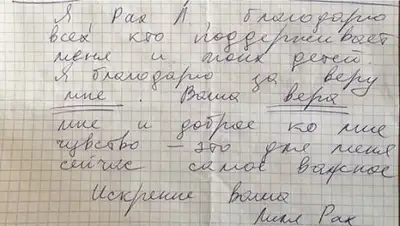 Я Рах Л благодарю
всех кто поддерживает
меня и моих детей.
Я благодарю за веру
мне. Ваша вера
мне и доброе ко мне
чувство – это для меня
сейчас самое важное
Искренне Ваша
Рах